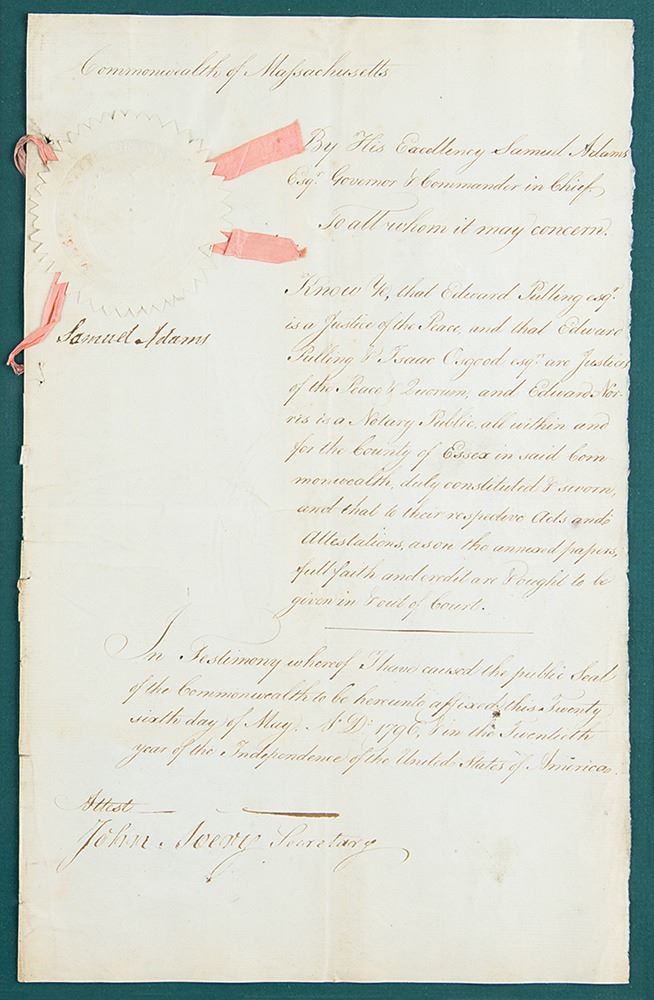 Commonwealth of Massachusetts
By His Excellency Samuel Adams
Esqr. Governor & Commander in Chief.
To all whom it may concern.
Know Ye, that Edward Pulling esqr.
is a Justice of the Peace, and that Edward
Pulling & Isaac Osgood esqrs. are Justices
of the Peace & Quorum, and Edward Nor-
ris is a Notary Public, all within and
for the County of Essex in said Com-
monwealth, duly constituted & sworn,
and that to their respective Acts and
Attestations, as on the annexed papers,
full faith and credit are & ought to be
given in & out of Court.
Samuel Adams
In Testimony whereof I have caused the public Seal
of the Commonwealth to be hereunto affixed, this Twenty
sixth day of May, A. D: 1796, & in the Twentieth
year of the Independence of the United States of America.
Attest
John Avery Secretary